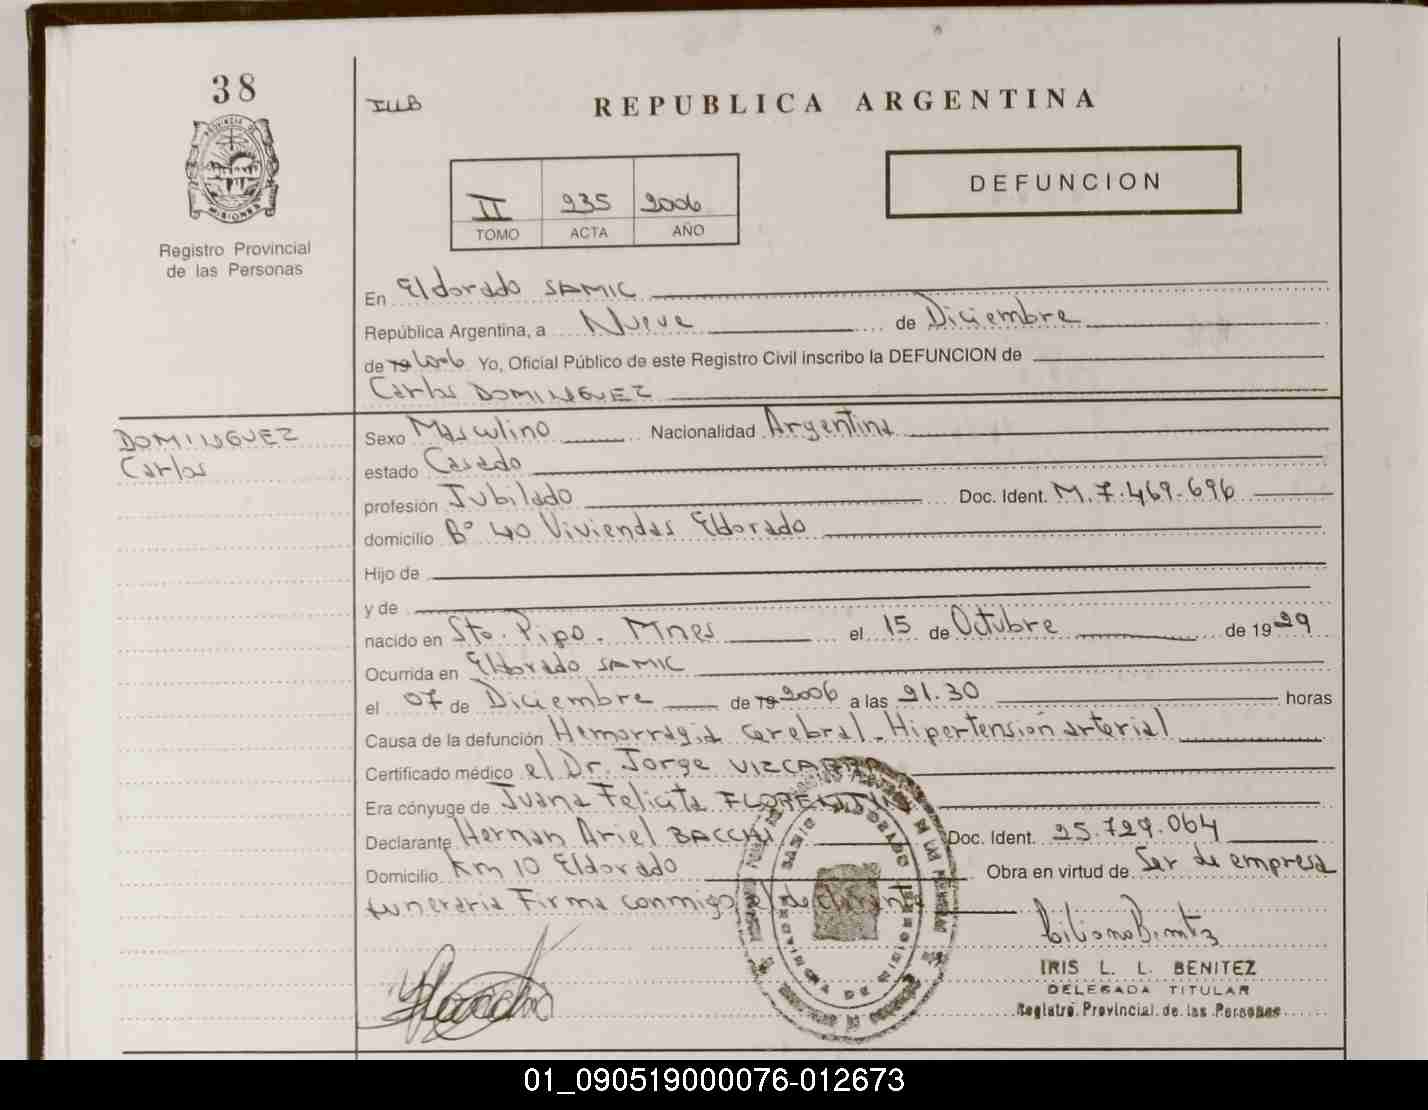 38
REPUBLICA ARGENTINA
PROVINCIA DE
MISIONES
Registro Provincial
de las Personas
II 235 2006
TOMO ACTA AÑO
DEFUNCION
En Eldorado SAMIC
República Argentina, a Nueve de Diciembre
de 19 2006 Yo, Oficial Público de este Registro Civil inscribo la DEFUNCION de
Carlos DOMINGUEZ
DOMINGUEZ
Carlos
Sexo Masculino Nacionalidad Argentina
estado Casado
profesión Jubilado Doc. Ident. M. 7.469.696
domicilio B° 40 Viviendas Eldorado
Hijo de
y de
nacido en Sto. Pipo. Mnes el 15 de Octubre de 1929
Ocurrida en Eldorado SAMIC
el 07 de Diciembre de 19 2006 a las 21.30 horas
Causa de la defunción Hemorragia Cerebral - Hipertensión arterial
Certificado médico el Dr. Jorge VIZCARRA
Era cónyuge de Juana Felicita FLORENTIN
Declarante Hernan Ariel BACCHI Doc. Ident. 25.729.064
Domicilio Km 10 Eldorado Obra en virtud de Ser de empresa
funeraria Firma conmigo el declarante
IRIS L. L. BENITEZ
DELEGADA TITULAR
Registro Provincial de las Personas
01_090519000076-012673